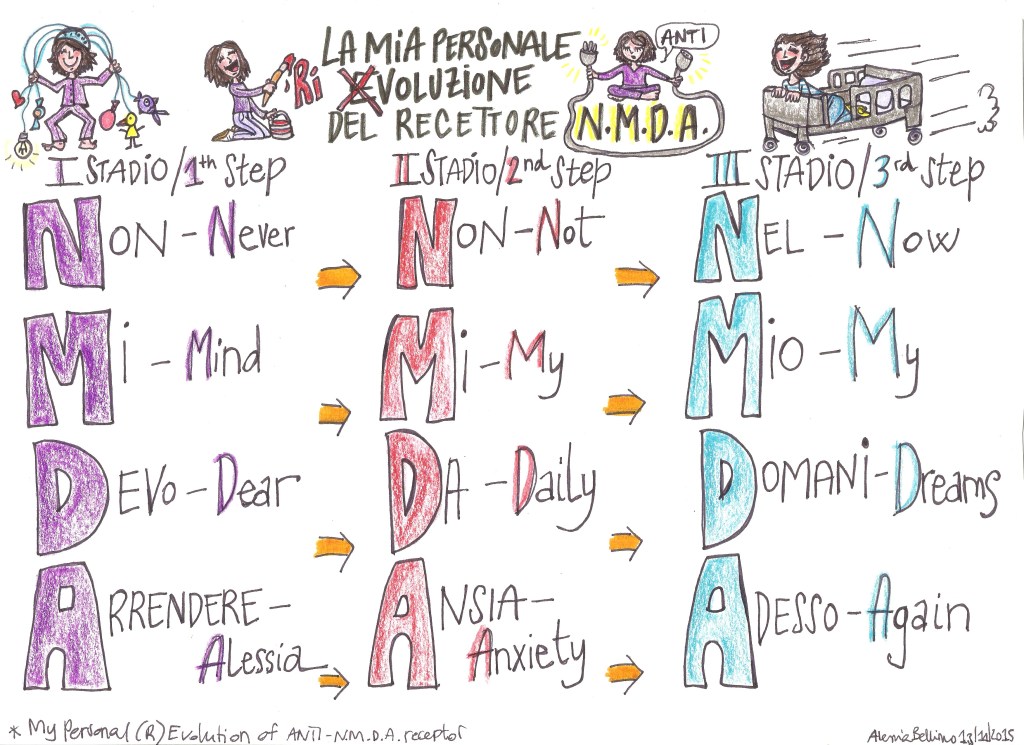 LA MIA PERSONALE
Ri EVOLUZIONE
ANTI
DEL RECETTORE N.M.D.A.
I STADIO/1th Step
NON - Never
Mi - Mind
DEVO - Dear
ARRENDERE -
Alessia
II STADIO/2nd Step
NON - Not
Mi - My
DA - Daily
ANSIA -
Anxiety
III STADIO/3rd step
NEL - Now
MIO - My
DOMANi - Dreams
ADESSO - Again
* My Personal (R)Evolution of ANTI-N.M.D.A. receptor